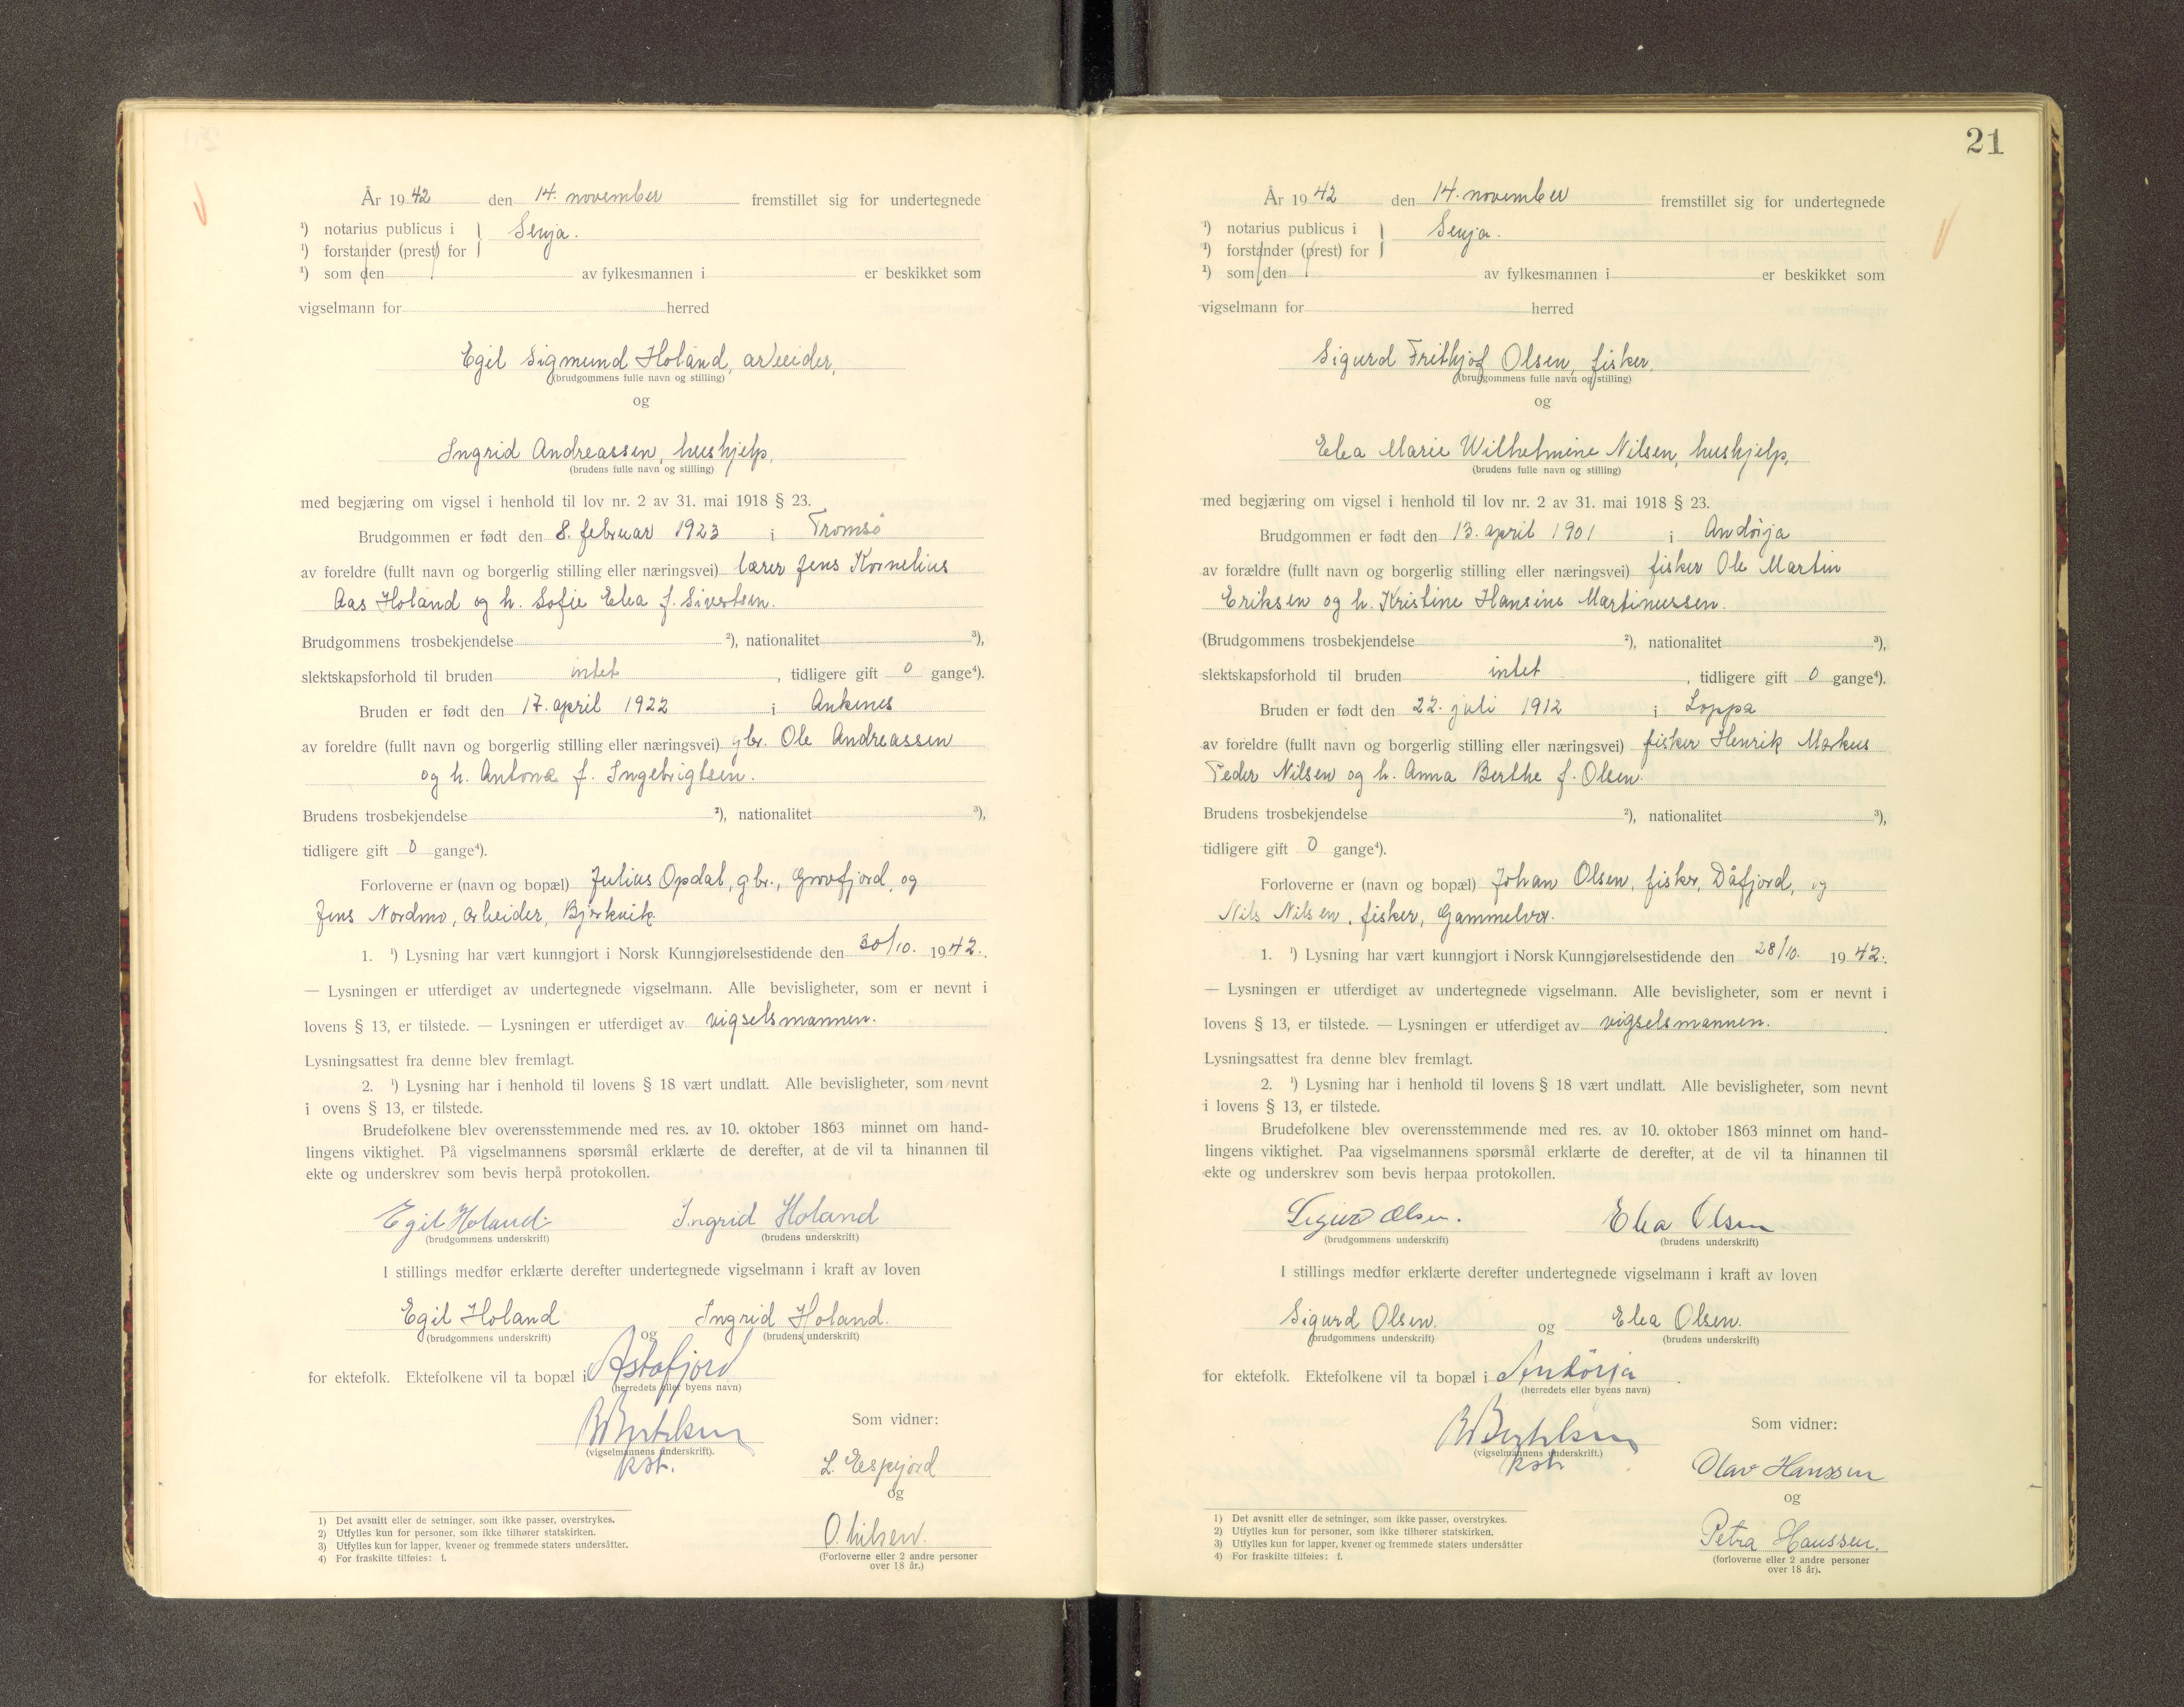 År 1942 den 14. november fremstillet sig for undertegnede
¹) notarius publicus i } Senja.
¹) forstander (prest) for
¹) som den av fylkesmannen i er beskikket som
vigselmann for herred
Egil Sigmund Holand, arbeider,
(brudgommens fulle navn og stilling)
og
Ingrid Andreassen, hushjelp,
(brudens fulle navn og stilling)
med begjæring om vigsel i henhold til lov nr. 2 av 31. mai 1918 § 23.
Brudgommen er født den 8. februar 1923 i Tromsø
av foreldre (fullt navn og borgerlig stilling eller næringsvei) lærer Jens Kornelius
Aas Holand og h. Sofie Elea f. Sivertsen.
Brudgommens trosbekjendelse ²), nationalitet ³),
slektskapsforhold til bruden intet, tidligere gift 0 gange⁴).
Bruden er født den 17. april 1922 i Ankenes
av foreldre (fullt navn og borgerlig stilling eller næringsvei) gbr. Ole Andreassen
og h. Antona f. Ingebrigtsen.
Brudens trosbekjendelse ²), nationalitet ³),
tidligere gift 0 gange⁴).
Forloverne er (navn og bopæl) Julius Opdal, gbr., Grovfjord, og
Jens Nordmo, arbeider, Bjerkvik.
1. ¹) Lysning har vært kunngjort i Norsk Kunngjørelsestidende den 30/10. 1942.
— Lysningen er utferdiget av undertegnede vigselmann. Alle bevisligheter, som er nevnt i
lovens § 13, er tilstede. — Lysningen er utferdiget av vigselsmannen.
Lysningsattest fra denne blev fremlagt.
2. ¹) Lysning har i henhold til lovens § 18 vært undlatt. Alle bevisligheter, som nevnt
i ovens § 13, er tilstede.
Brudefolkene blev overensstemmende med res. av 10. oktober 1863 minnet om hand-
lingens viktighet. På vigselmannens spørsmål erklærte de derefter, at de vil ta hinannen til
ekte og underskrev som bevis herpå protokollen.
Egil Holand. Ingrid Holand
(brudgommens underskrift) (brudens underskrift)
I stillings medfør erklærte derefter undertegnede vigselmann i kraft av loven
Egil Holand og Ingrid Holand.
(brudgommens underskrift) (brudens underskrift)
for ektefolk. Ektefolkene vil ta bopæl i Astafjord
(herredets eller byens navn)
Som vidner:
(vigselmannens underskrift).
kst.
L. Espejord
og
O. Nilsen.
(Forloverne eller 2 andre personer
over 18 år.)
1) Det avsnitt eller de setninger, som ikke passer, overstrykes.
2) Utfylles kun for personer, som ikke tilhører statskirken.
3) Utfylles kun for lapper, kvener og fremmede staters undersåtter.
4) For fraskilte tilføies: f.
21
År 1942 den 14. november fremstillet sig for undertegnede
¹) notarius publicus i } Senja.
¹) forstander (prest) for
¹) som den av fylkesmannen i er beskikket som
vigselmann for herred
Sigurd Frithjof Olsen, fisker,
(brudgommens fulle navn og stilling)
og
Elea Marie Wilhelmine Nilsen, hushjelp,
(brudens fulle navn og stilling)
med begjæring om vigsel i henhold til lov nr. 2 av 31. mai 1918 § 23.
Brudgommen er født den 13. april 1901 i Andørja
av forældre (fullt navn og borgerlig stilling eller næringsvei) fisker Ole Martin
Eriksen og h. Kristine Hansine Martinussen.
(Brudgommens trosbekjendelse ²), nationalitet ³),
slektskapsforhold til bruden intet, tidligere gift 0 gange⁴).
Bruden er født den 22. juli 1912 i Loppa
av foreldre (fullt navn og borgerlig stilling eller næringsvei) fisker Henrik Markus
Peder Nilsen og h. Anna Berthe f. Olsen.
Brudens trosbekjendelse ²), nationalitet ³),
tidligere gift 0 gange⁴).
Forloverne er (navn og bopæl) Johan Olsen, fisker, Dåfjord, og
Nils Nilsen, fisker, Gammelvær.
1. ¹) Lysning har vært kunngjort i Norsk Kunngjørelsestidende den 28/10. 1942.
— Lysningen er utferdiget av undertegnede vigselmann. Alle bevisligheter, som er nevnt i
lovens § 13, er tilstede. — Lysningen er utferdiget av vigselsmannen.
Lysningsattest fra denne blev fremlagt.
2. ¹) Lysning har i henhold til lovens § 18 vært undlatt. Alle bevisligheter, som nevnt
i lovens § 13, er tilstede.
Brudefolkene blev overensstemmende med res. av 10. oktober 1863 minnet om hand-
lingens viktighet. Paa vigselmannens spørsmål erklærte de derefter, at de vil ta hinannen til
ekte og underskrev som bevis herpaa protokollen.
Sigurd Olsen. Elea Olsen
(brudgommens underskrift) (brudens underskrift)
I stillings medfør erklærte derefter undertegnede vigselmann i kraft av loven
Sigurd Olsen. og Elea Olsen.
(brudgommens underskrift) (brudens underskrift)
for ektefolk. Ektefolkene vil ta bopæl i Andörja.
(herredets eller byens navn)
Som vidner:
(vigselmannens underskrift.)
kst.
Olav Hanssen
og
Petra Hanssen.
(forloverne eller 2 andre personer
over 18 år).
1) Det avsnitt eller de setninger, som ikke passer, overstrykes.
2) Utfylles kun for personer, som ikke tilhører statskirken.
3) Utfylles kun for lapper, kvener og fremmede staters undersåtter
4) For fraskilte tilføies: f.